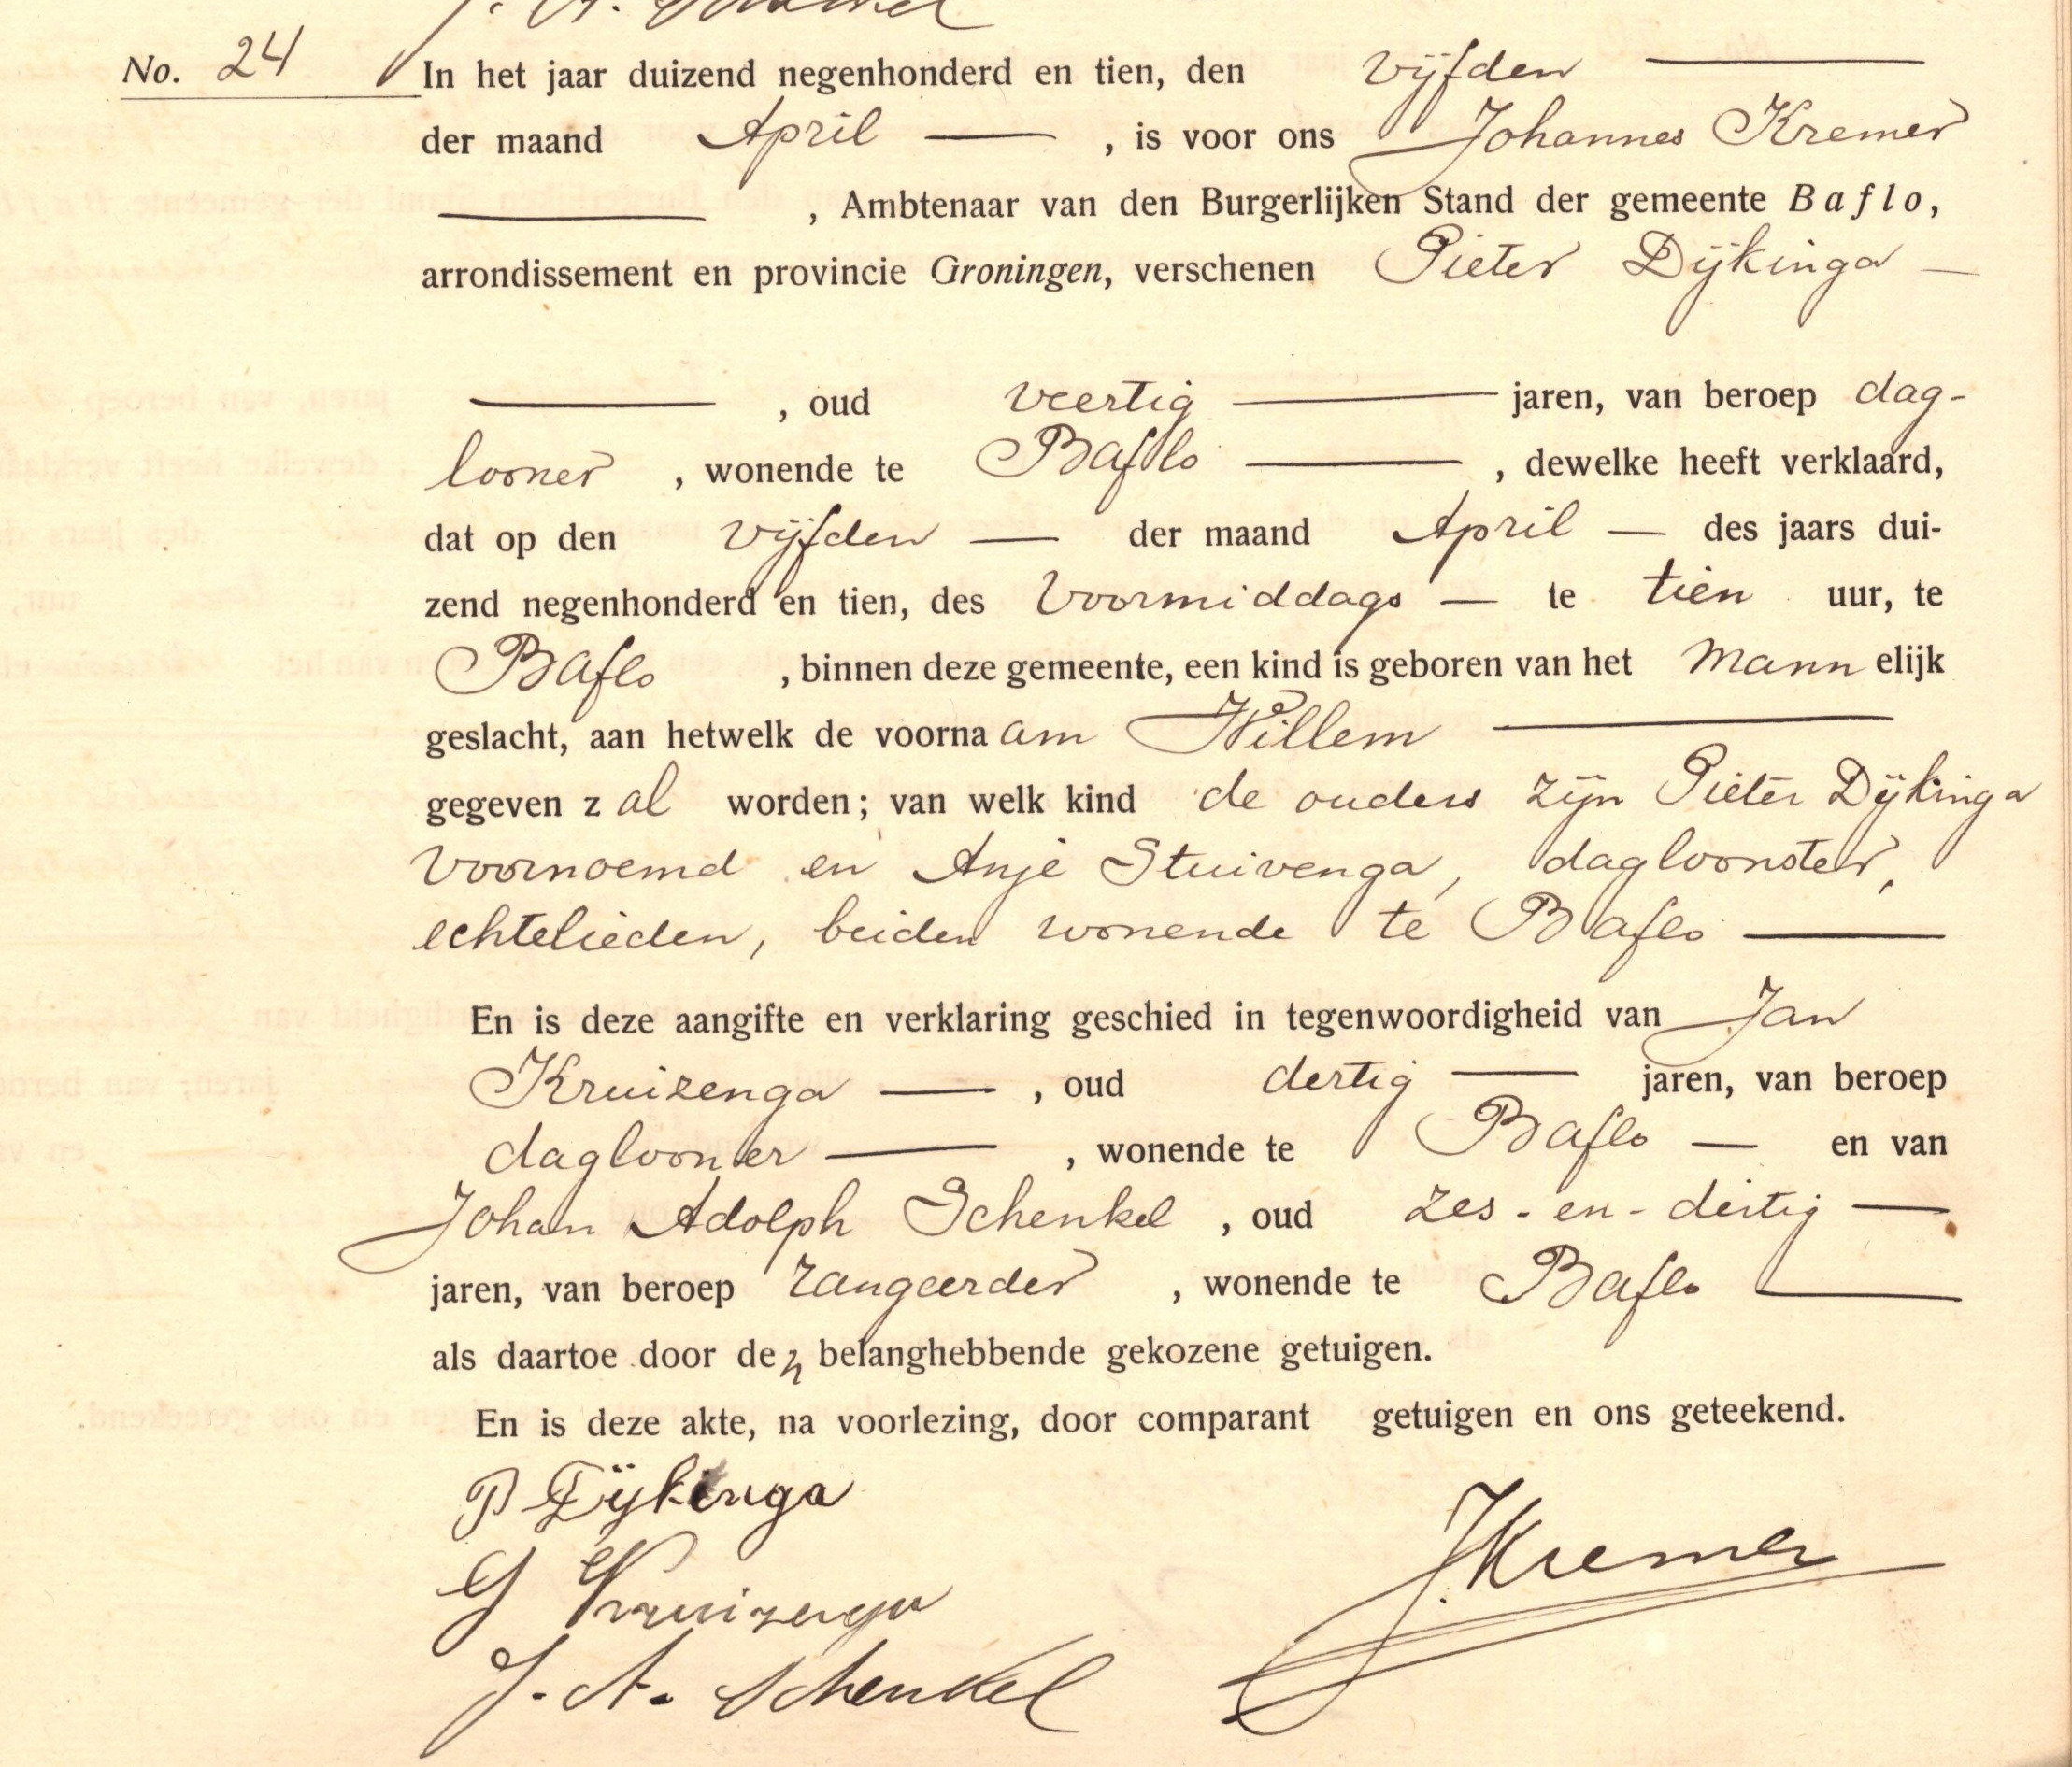 J. A. Schenkel
No. 24 In het jaar duizend negenhonderd en tien, den vijfden
der maand April, is voor ons Johannes Kremer
, Ambtenaar van den Burgerlijken Stand der gemeente Baflo,
arrondissement en provincie Groningen, verschenen Pieter Dijkinga
, oud veertig jaren, van beroep dag-
looner, wonende te Baflo, dewelke heeft verklaard,
dat op den vijfden der maand April des jaars dui-
zend negenhonderd en tien, des voormiddags te tien uur, te
Baflo, binnen deze gemeente, een kind is geboren van het mannelijk
geslacht, aan hetwelk de voornaam Willem
gegeven zal worden; van welk kind de ouders zijn Pieter Dijkinga
voornoemd en Anje Stuivenga, dagloonster,
echtelieden, beiden wonende te Baflo
En is deze aangifte en verklaring geschied in tegenwoordigheid van Jan
Kruizenga, oud dertig jaren, van beroep
daglooner, wonende te Baflo en van
Johan Adolph Schenkel, oud zes-en-dertig
jaren, van beroep rangeerder, wonende te Baflo
als daartoe door den belanghebbende gekozene getuigen.
En is deze akte, na voorlezing, door comparant getuigen en ons geteekend.
P Dijkinga
J Kruizenga
J Kremer
J. A. Schenkel